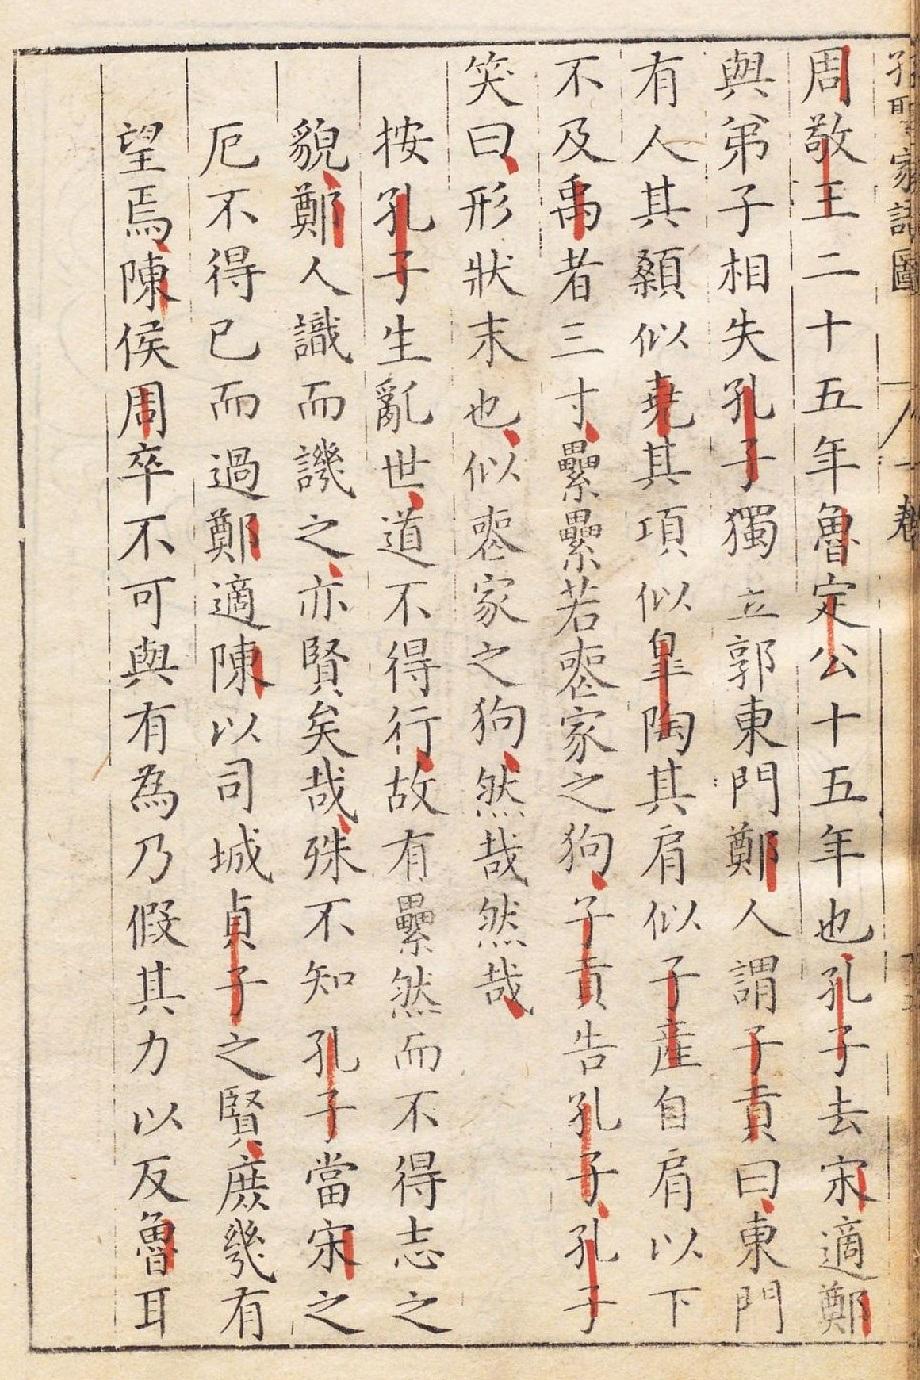 孔聖家語圖 一卷
周敬王二十五年魯定公十五年也孔子去宋適鄭
與弟子相失孔子獨立郭東門鄭人謂子貢曰東門
有人其顙似堯其項似皐陶其肩似子產自肩以下
不及禹者三寸纍纍若喪家之狗子貢告孔子孔子
笑曰形狀末也似喪家之狗然哉然哉
按孔子生亂世道不得行故有纍然而不得志之
貌鄭人識而譏之亦賢矣哉殊不知孔子當宋之
厄不得已而過鄭適陳以司城貞子之賢庶幾有
望焉陳侯周卒不可與有為乃假其力以反魯耳